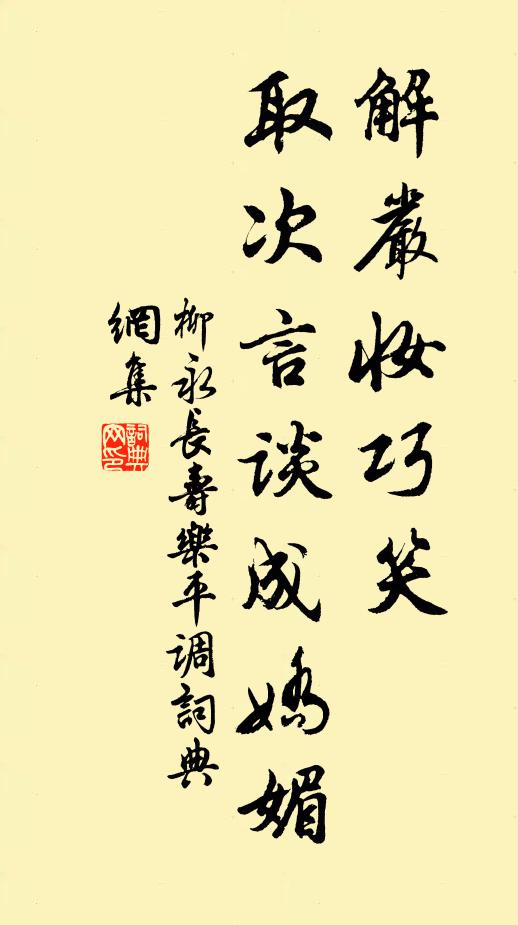 解嚴妝巧笑
取次言談成嬌媚
柳永長壽樂平调詞典
網集
詞典
网印